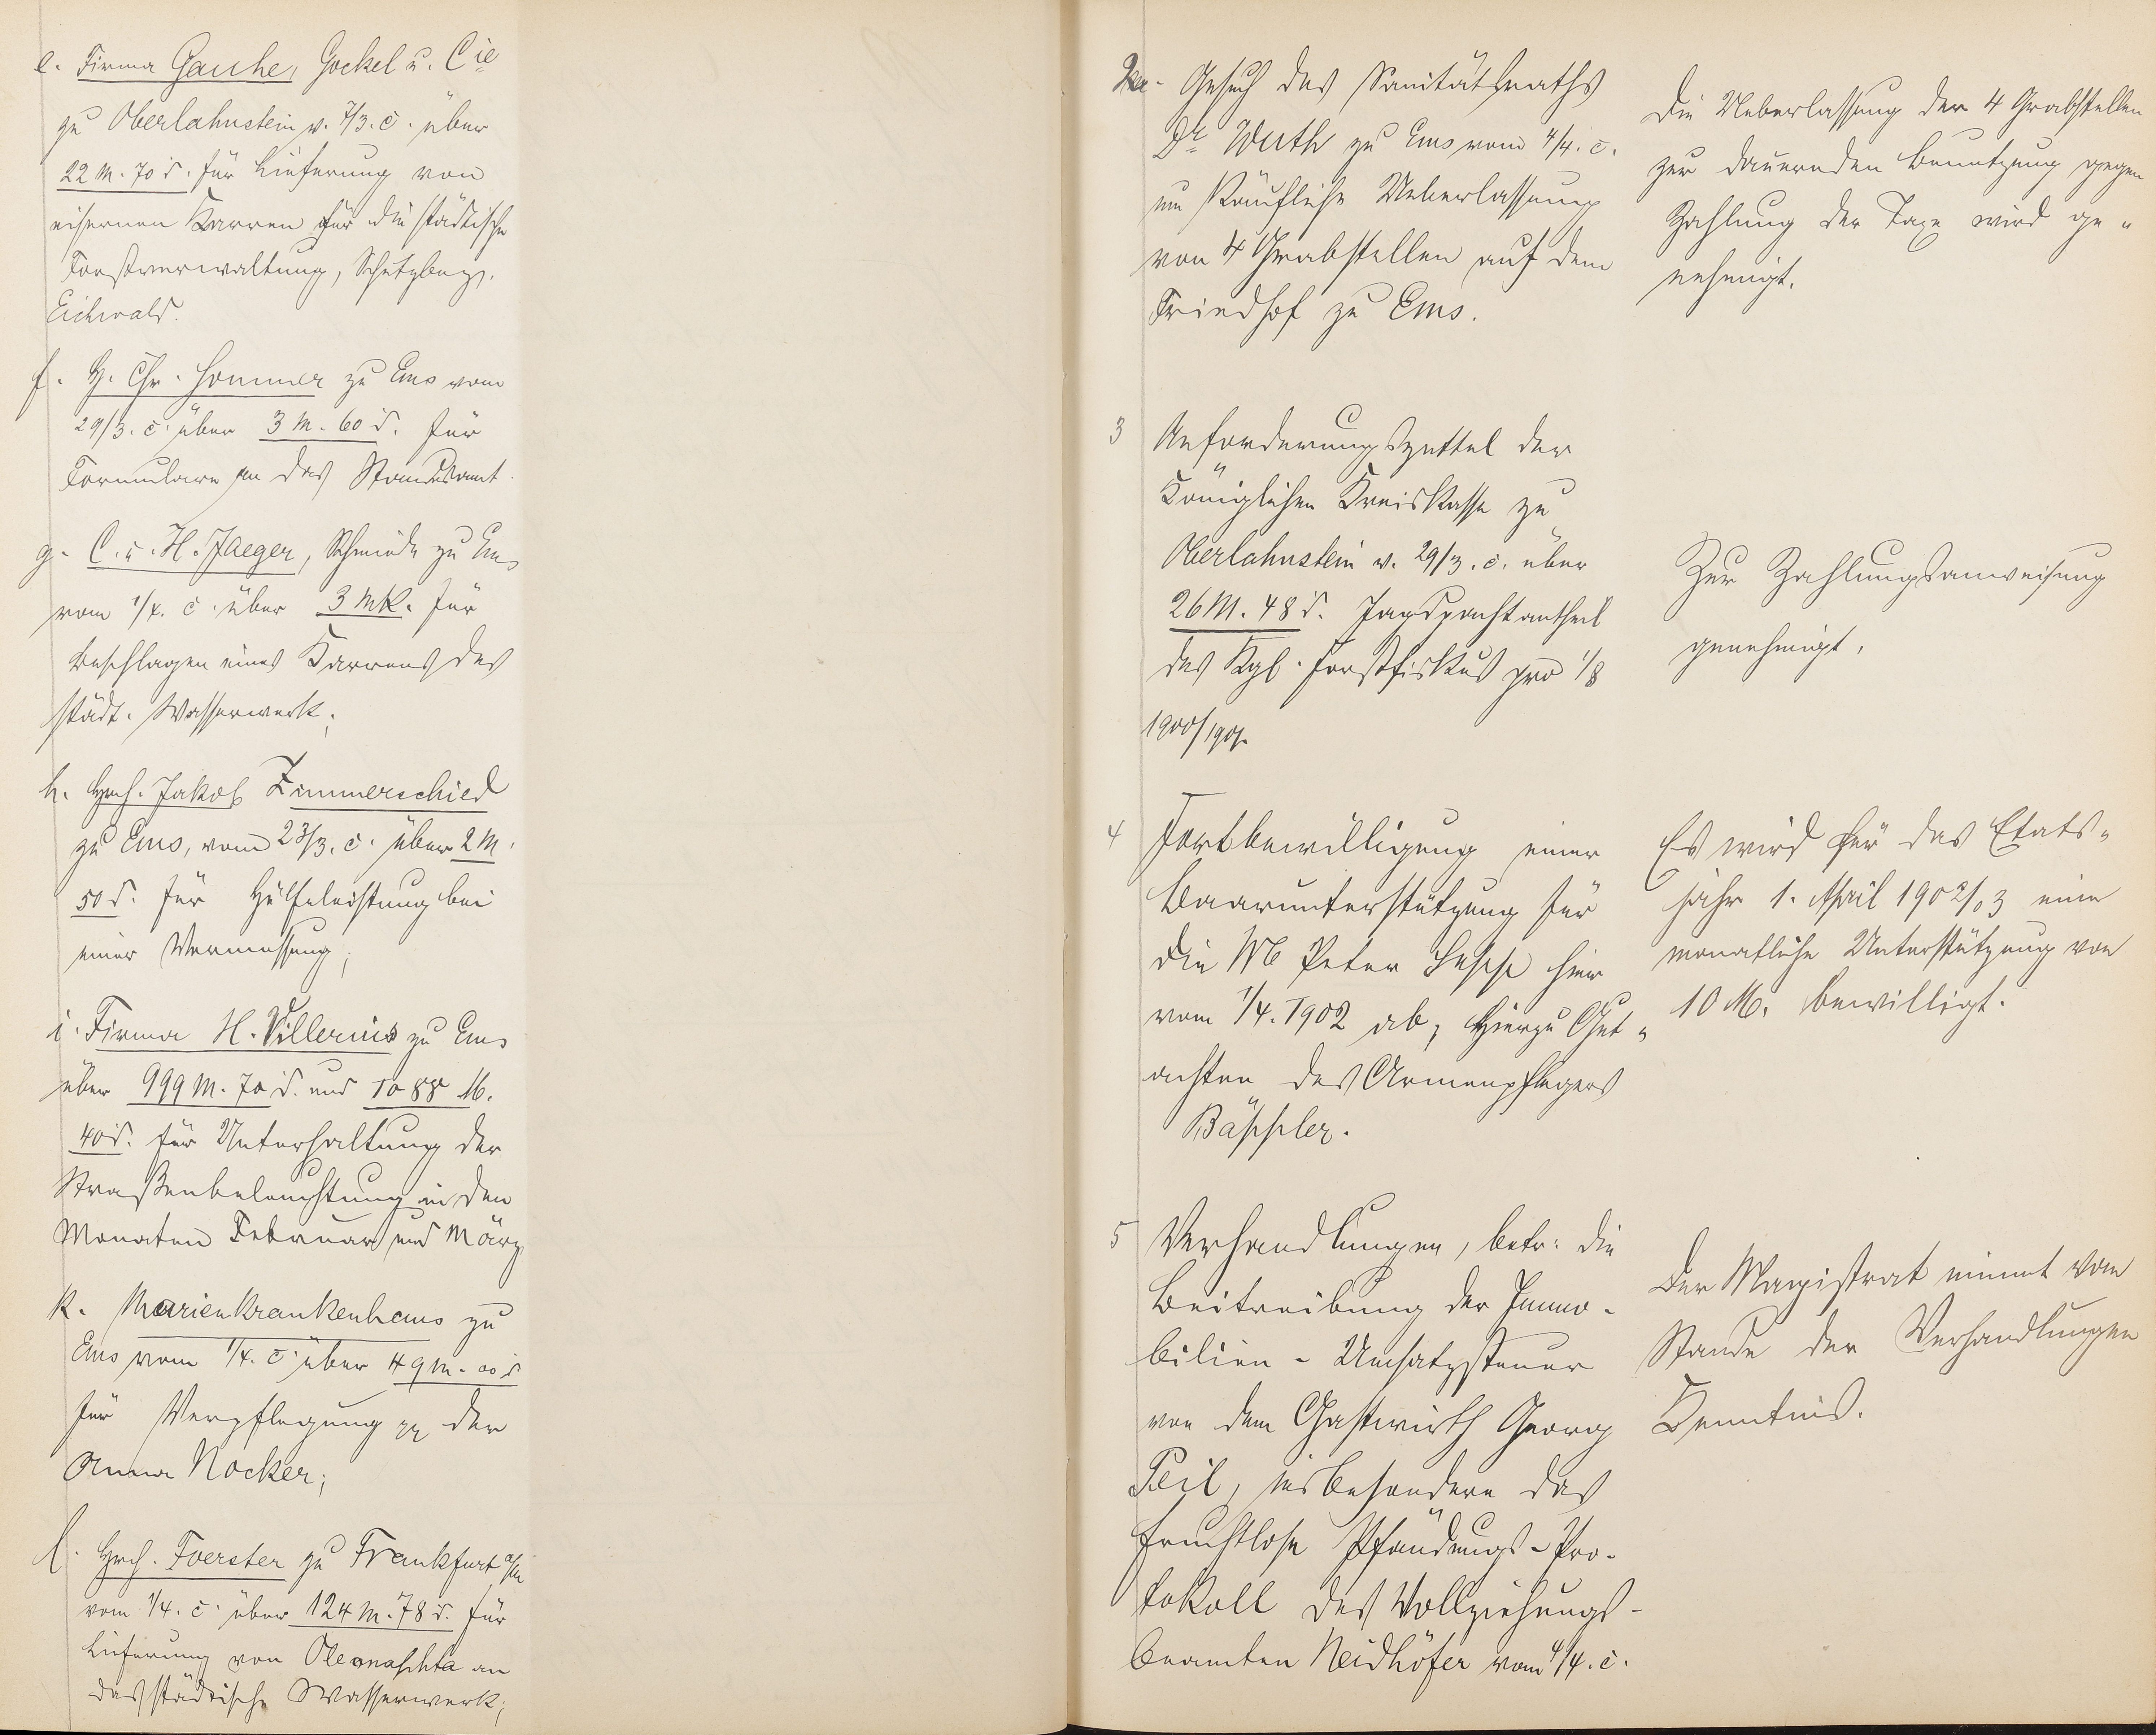 e. Firma Gauhe, Gockel u. Cie
zu Oberlahnstein v. 7/3. c. über
22 M. 70 d. für Lieferung von
eisernen Karren für die städtische
Forstverwaltung, Schutzbez.
Eichwald.
f. H. Chr. Sommer zu Ems vom
29/3. c. über 3 M. 60 d. für
Formulare an das Standesamt.
g. C. u. H. Jaeger, Schmiede zu Ems
vom 1/4. c. über 3 Mk. für
Beschlagen eines Karrens des
städt. Wasserwerk;
h. Hrch. Jakob Zimmerschied
zu Ems, vom 23/3. c. über 2 M.
50 d. für Hülfeleistung bei
einer Vermessung;
i. Firma H. Villerius zu Ems
über 999 M. 70 d. und 1088 M.
40 d. für Unterhaltung der
Straßenbeleuchtung in den
Monaten Februar und März
k. Marienkrankenhaus zu
Ems vom 1/4. c. über 49 M. 00 d
für Verpflegung pp der
Anna Nocker;
l. Hrch. Foerster zu Frankfurt a/M
vom 1/4. c. über 124 M. 78 d. für
Lieferung von Oleonaphta an
das städtische Wasserwerk;
Gesuch des Sanitätsraths
Dr. Wuth zu Ems vom 4/4. c.
um käufliche Ueberlassung
von 4 Grabstellen auf dem
Friedhof zu Ems.
Die Ueberlassung der 4 Grabstellen
zur dauernden Benutzung gegen
Zahlung der Taxe wird ge-
nehmigt.
3 Anforderungszettel der
Königlichen Kreiskasse zu
Oberlahnstein v. 29/3. c. über
26 M. 48 d. Jagdpachtantheil
des Kgl. Forstfiskus pro 1/8
1900/1901.
Zur Zahlungsanweisung
genehmigt.
4 Fortbewilligung einer
Baarunterstützung für
die Peter hier
vom 1/4. 1902 ab; Hierzu Gut-
achten des Armenpflegers
Bäppler.
Es wird für das Etats-
jahr 1. April 1902/03 eine
monatliche Unterstützung von
10 M. bewilligt.
5 Verhandlungen, betr. die
Beitreibung der Immo-
bilien-Umsatzsteuer
von dem Gastwirth Georg
Peil, insbesondere das
fruchtlose Pfändungs-Pro-
tokoll des Vollziehungs-
beamten Neidhöfer vom 4/4. c.
Der Magistrat nimmt vom
Stande der Verhandlungen
Kenntnis.